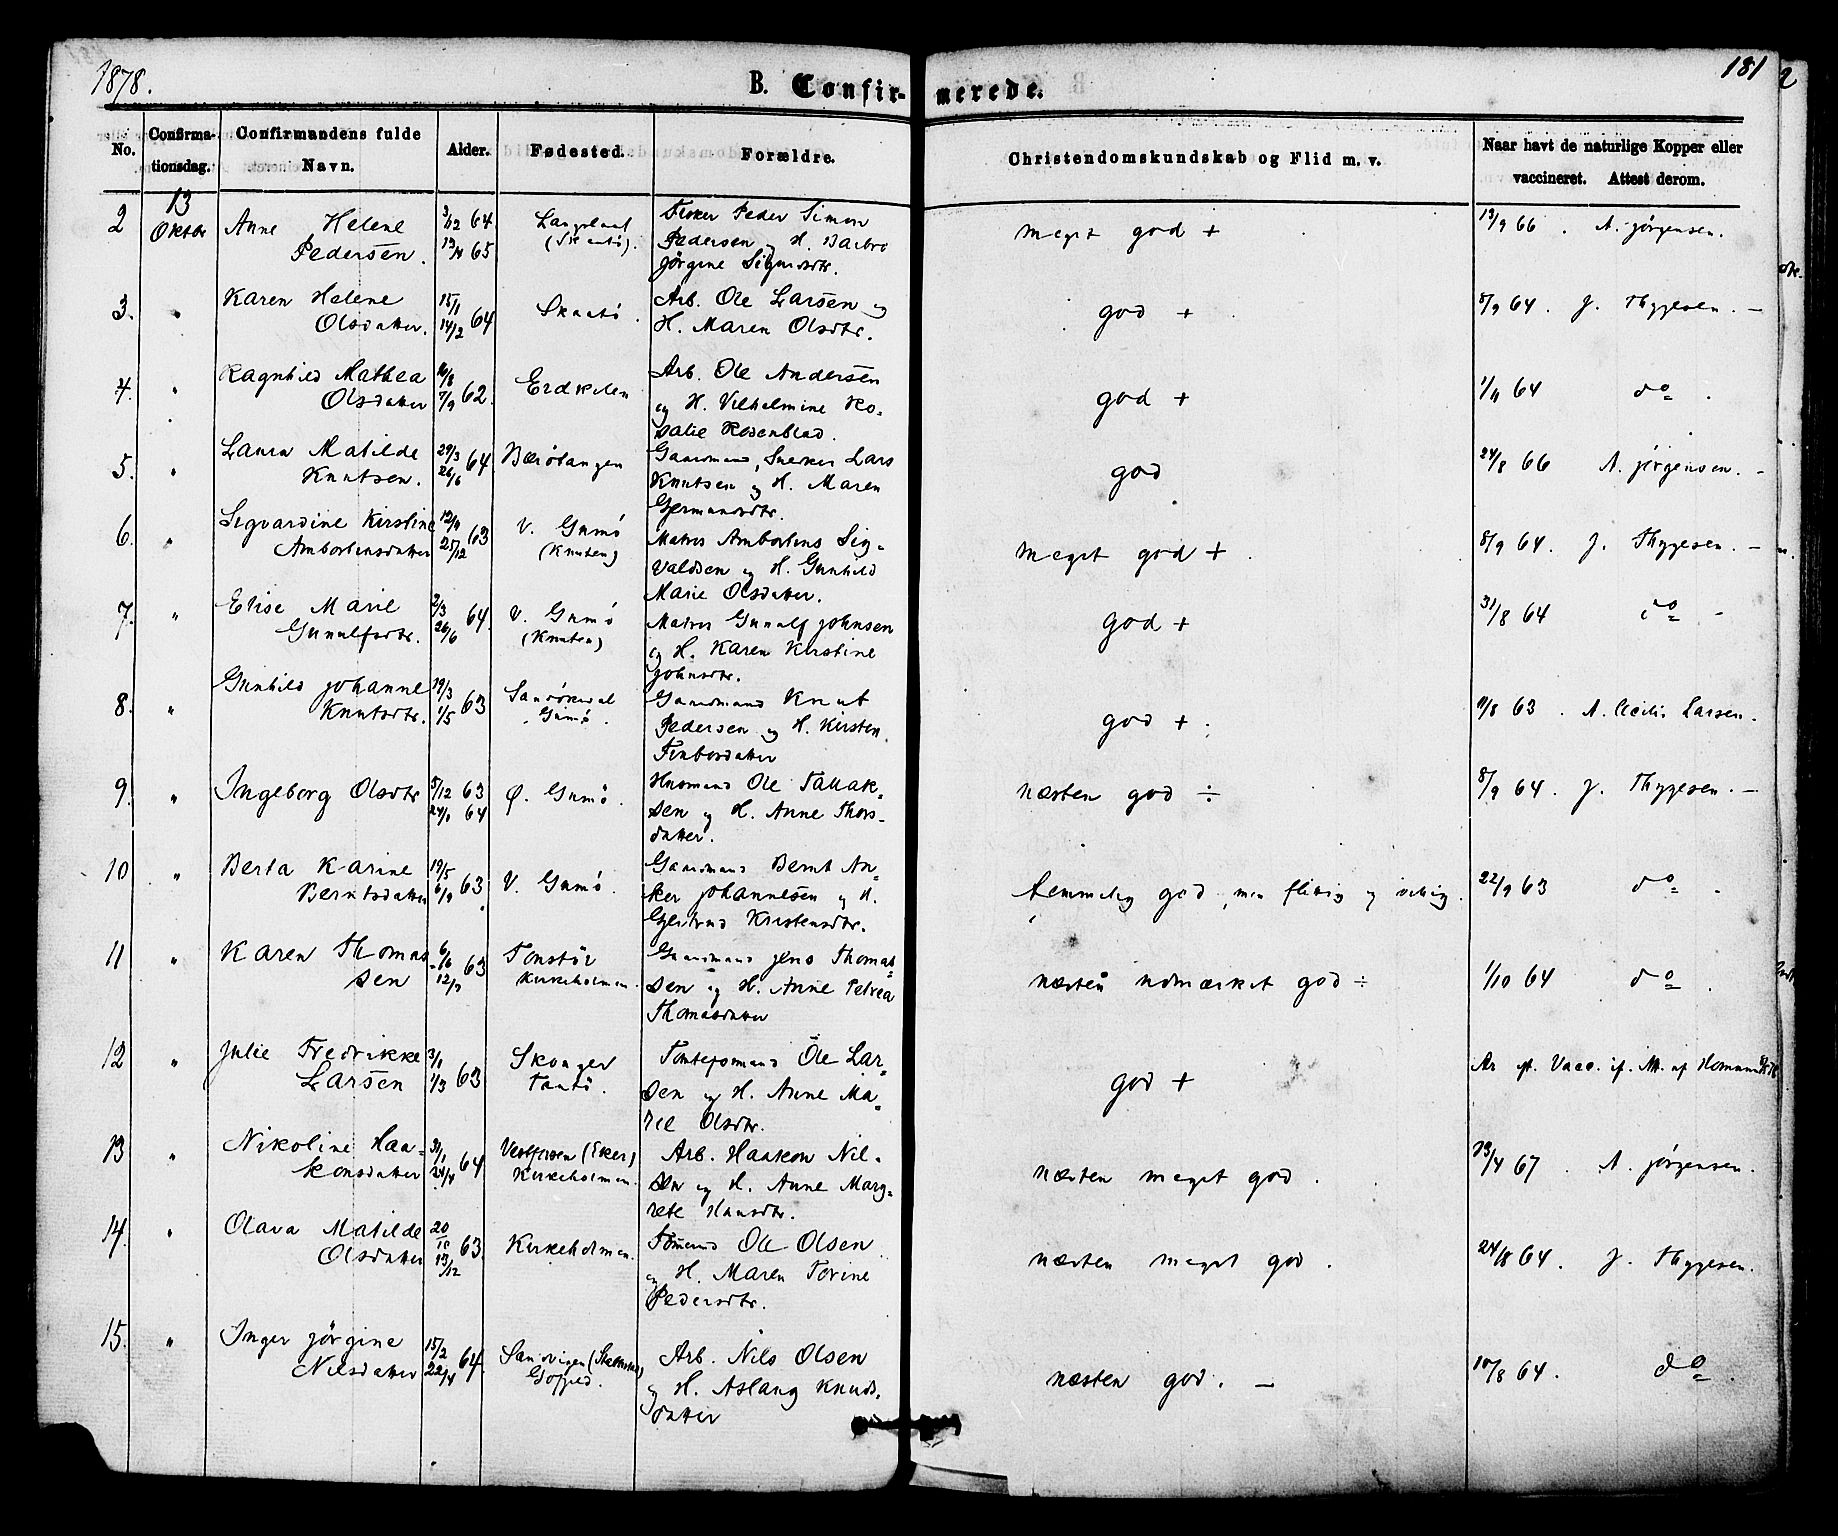 1878.
B. Confirmerede.
181
No.
Confirmationsdag.
Confirmandens fulde Navn.
Alder.
Fødested.
Forældre.
Christendomskundskab og Flid m. v.
Naar havt de naturlige Kopper eller vaccineret. Attest derom.
2 13 Oktbr Anne Helene Pedersen. 3/12 64 (Skaatø). Fisker Peder Simon Pedersen og H. Barbro Jørgine Sigmodtr. meget god + 13/9 66. A. Jørgensen.
3. " Karen Helene Olsdatter. 15/1 14/2 64 Skaatø. Arb. Ole Larsen og H. Maren Olsdtr. god + 8/9 64. J. Thygesen. –
4. " Ragnhild Mathea Olsdatter 7/9 62. Arb. Ole Andersen og H. Vilhelmine Rosalie Rosenblad. god + 64 do.
5. " Laura Matilde Knutsen. 29/3 26/6 64 Bærøtangen Gaardmand, Snekker Lars Knutsen og H. Maren god 24/8 66 A. Jørgensen. –
6. " Sigvardine Kirstine 25/12 63 V. Gumø (Knuten) Matros Sigvaldsen og H. Gunhild Marie Olsdatter. meget god +. 8/9 64. J. Thygesen. –
7. " Elise Marie Gunulfsdtr. 2/3 26/6 64. V. Gumø (Knuten) Matros Gunulf Johnsen og H. Karen Kirstine Johnsdtr. god + 31/8 64 do –
8. " Gunhild Johanne Knutsdtr. 19/3 1/5 63 Gumø. Gaardmand Knut Pedersen og H. Kirsten god +. 63. A. Cecilie Larsen.
9. " Ingeborg Olsdtr 5/12 63 64 Ø. Gumø. Husmand Ole Tallaksen og H. Anne Thorsdatter. næsten god ÷ 8/9 64. J. Thygesen. –
10 " Berta Karine Berntsdatter 19/5 6/9 63. V. Gumø. Gaardmand Bernt Anker Johannesen og H. Gjertrud Kristensdtr. temmelig god, men flittig og 22/9 63 do.
11 " Karen Thomassen 6/6 63 Tonstøl Kirkeholmen. Gaardmand Jens Thomassen og H. Anne Petrea Thomasdatter næsten udmærket god ÷ 1/10 64 do.
12 " Julie Fredrikke Larsen 3/1 1/3 63 Ole Larsen og H. Anne Marie Olsdtr. god +
13 " Nikoline Haakonsdatter 31/1 24/4 64 Kirkeholmen. Arb. Haakon Nilsen og H. Anne Margrete Hansdtr. næsten meget god. 19/4 67. A. Jørgensen.
14. " Olava Matilde Olsdatter 20/10 13/12 63. Kirkeholmen. Ole Olsen og H. Maren Torine Pedersdtr. næsten meget god. 24/8 64. J. Thygesen.
15. " Inger Jørgine Nilsdatter 15/2 22/4 64. Arb. Nils Olsen og H. Aslaug Knudsdatter næsten god. – 10/8 64. do.